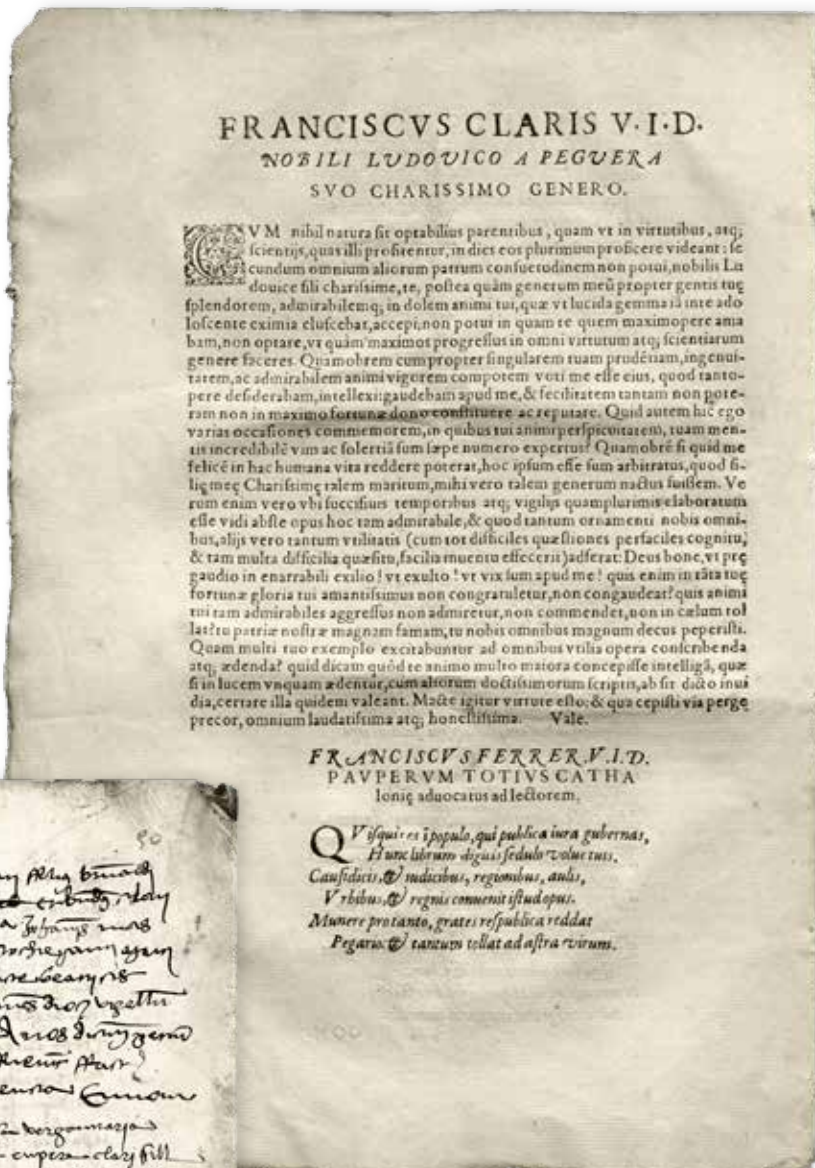 FRANCISCVS CLARIS V·I·D·
NOBILI LVDOVICO A PEGVERA
SVO CHARISSIMO GENERO.
CVM nihil natura sit optabilius parentibus, quam vt in virtutibus, atq;
scientijs, quas illi profitentur, in dies eos plurimum proficere videant: se
cundum omnium aliorum patrum consuetudinem non potui, nobilis Lu
douice fili charissime, te, postea quàm generum meũ propter gentis tuę
splendorem, admirabilemq; in dolem animi tui, quæ vt lucida gemma iã inte ado
loscente eximia eluscebat, accepi; non potui in quam te quem maximopere ama
bam, non optare, vt quàm maximos progressus in omni virtutum atq; scientiarum
genere faceres. Quamobrem cum propter singularem tuam prudẽtiam, ingenui-
tatem, ac admirabilem animi vigorem compotem voti me esse eius, quod tanto-
pere desiderabam, intellexi: gaudebam apud me, & fœcilitatem tantam non pote-
ram non in maximo fortunæ dono constituere ac reputare. Quid autem hic ego
varias occasiones commemorem, in quibus tui animi perspicuitatem, tuam men-
tis incredibilẽ vim ac solertiã sum sæpe numero expertus? Quamobrẽ si quid me
felicẽ in hac humana vita reddere poterat, hoc ipsum esse sum arbitratus, quod fi-
lię meę Charissimę talem maritum, mihi vero talem generum nactus fuissem. Ve
rum enim vero vbi succisiuis temporibus atq; vigilijs quamplurimis elaboratum
esse vidi abste opus hoc tam admirabile, & quod tantum ornamenti nobis omni-
bus, alijs vero tantum vtilitatis (cum tot difficiles quæstiones perfaciles cognitu,
& tam multa difficilia quæsitu, facilia inuentu effecerit) adferat: Deus bone, vt prę
gaudio in enarrabili exilio! vt exulto! vt vix sum apud me! quis enim in tãta tuę
fortunæ gloria tui amantissimus non congratuletur, non congaudeat? quis animi
tui tam admirabiles aggressus non admiretur, non commendet, non in cælum tol
lat? tu patriæ nostræ magnam famam, tu nobis omnibus magnum decus peperisti.
Quam multi tuo exemplo excitabuntur ad omnibus vtilia opera conscribenda
atq; ædenda? quid dicam quòd te animo multo maiora concepisse intelligã, quæ
si in lucem vnquam ædentur, cum aliorum doctissimorum scriptis, ab sit dicto inui
dia, certare illa quidem valeant. Macte igitur virtute esto: & qua cepisti via perge
precor, omnium laudatissima atq; honestissima. Vale.
FRANCISCVS FERRER.V.I.D.
PAVPERVM TOTIVS CATHA
lonię aduocatus ad lectorem.
QVisquires ĩ populo, qui publica iura gubernas,
Hunc librum dignis sedulo volue tuis.
Causidicis, & iudicibus, regionibus, aulis,
Vrbibus, & regnis conuenit istud opus.
Munere pro tanto, grates respublica reddat
Pegario. & tantum tollat ad astra virum.
50